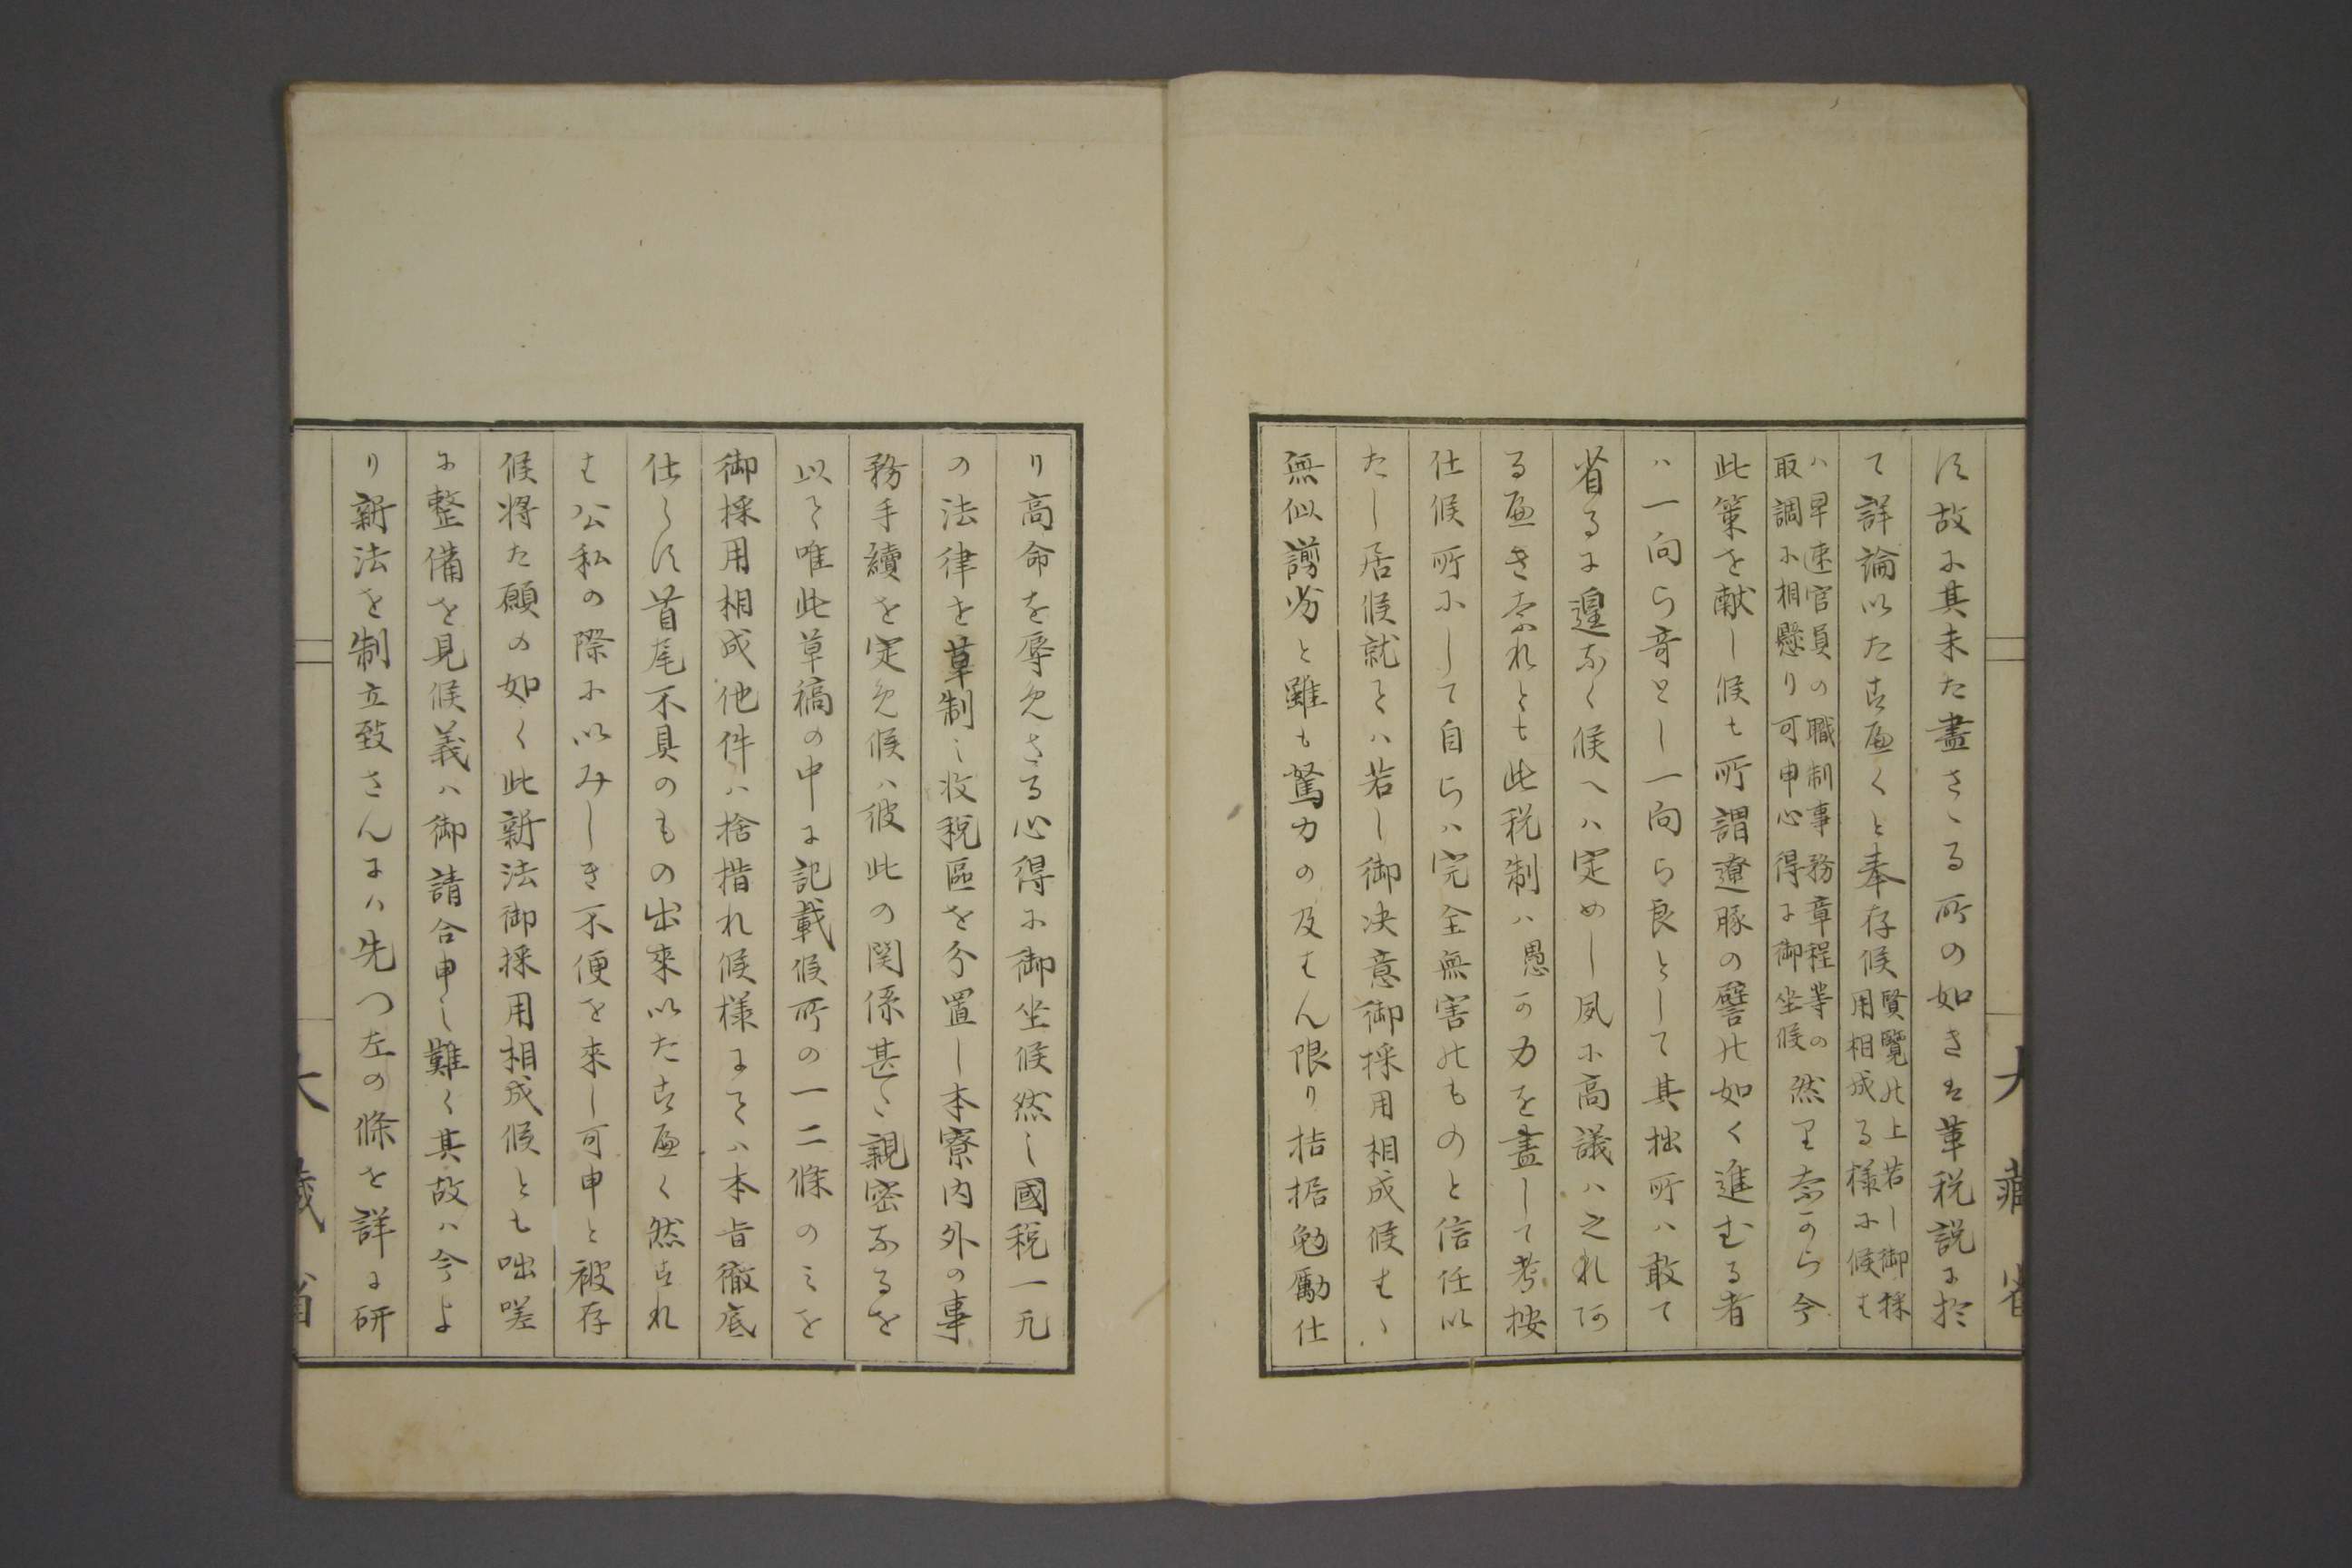 大藏省
す故に其未た盡さゝる所の如きは革税説に於
て詳論いたすへくと奉存候賢覽の上若し御採
用相成る様に候は
ハ早速官員の職制事務章程等の
取調に相懸り可申心得に御坐候然りなから今
此策を献し候も所謂遼豚の譬の如く進むる者
ハ一向ら奇とし一向ら良として其拙所ハ敢て
省るに遑なく候へハ定めし夙に高議ハ之れ可
る へきなれとも此税制ハ愚の力を盡して考按
仕候所にして自らハ完全無害のものと信任い
たし居候就てハ若し御决意御採用相成候はゝ
無似謭劣と雖も駑力の及はん限り拮据勉勵仕
り高命を辱めさる心得に御坐候然し國税一元
の法律を草制し收税區を分置し本寮内外の事
務手續を定め候ハ彼此の関係甚た親密なるを
以て唯此草稿の中に記載候所の一二條のミを
御採用相成他件ハ捨措れ候様にてハ本旨徹底
仕らす首尾不具のもの出來いたすへく然すれ
は公私の際にいみしき不便を來し可申と被存
候将た願の如く此新法御採用相成候とも咄嗟
に整備を見候義ハ御請合申し難く其故ハ今よ
り新法を制立致さんにハ先つ左の條を詳に研
大藏省